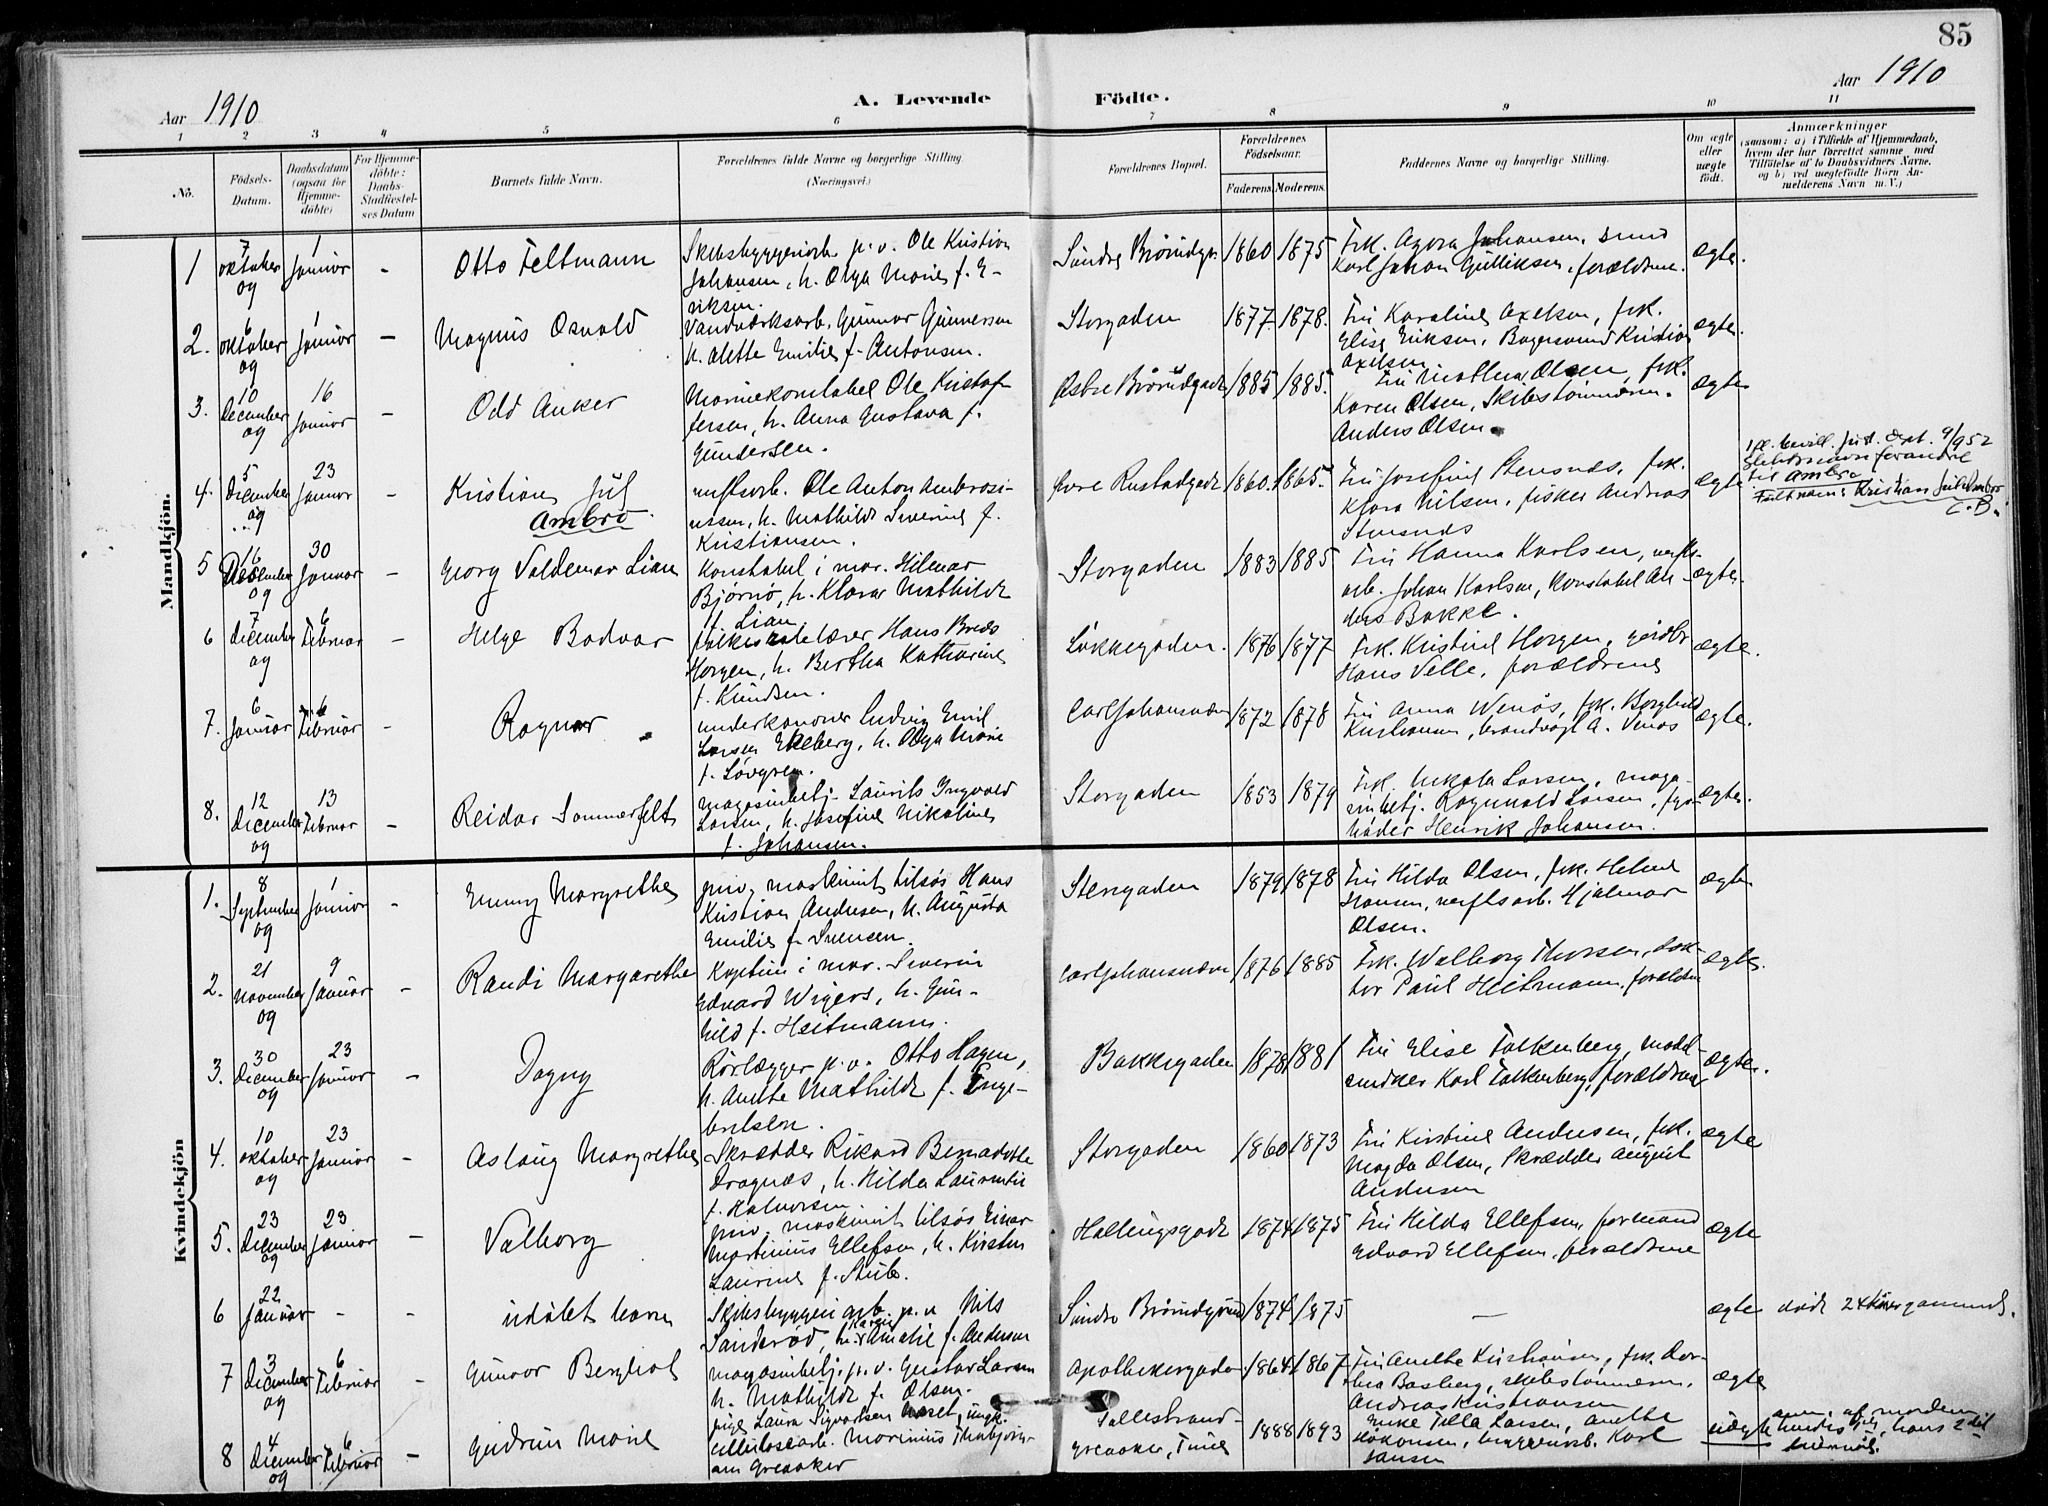 85
Aar 1910
Aar 1910
A. Levende Födte.
1 2 3 4 5 6 7 8 9 10 11
No.
Födsels-Datum.
Daabsdatum (ogsaa for Hjemme-döbte)
For Hjemme-döbte: Daabs-Stadfæstel-ses Datum
Barnets fulde Navn.
Forældrenes fulde Navne og borgerlige Stilling. (Næringsvei.)
Forældrenes Bopæl.
Forældrenes Födselsaar.
Faderens. Moderens.
Faddernes Navne og borgerlige Stilling.
Om ægte eller uægte födt.
Anmærkninger
(saasom: a) i Tilfælde af Hjemmedaab,
hvem der har forrettet samme, med
Tilföielse af to Daabsvidners Navne.
og b) ved uægtefödte Börn An-
melderens Navn m. V.)
Mandkjön.
1 7 oktober og 1 Januar - Otto Feltmann
Skibsbyggeriarb. p. v. Ole Kristian
Johansen, h. Olga Marie f. E-
riksen.
Søndre Brøndgt. 1860 1875
Frk. Agora Johansen, smed
Karl Johan Gulliksen, forældrene. ægte.
2. 6 oktober og 1 Januar - Magnus Osvald
Vandværksarb. Gunnar Gunnersen
h. Anette Emilie f. Antonsen.
Storgaden 1877 1878.
Fru Karoline Axelsen, frk.
Elise Eriksen, Bagersvend Kristian
Axelsen ægte.
3. 10 December og 16 Januar - Odd Anker
Marinekonstabel Ole Kristof-
fersen, h. Anna Gustava f.
Gundersen.
Østre Brøndgade 1885 1885.
Fru Mathea Olsen, frk.
Karen Olsen, Skibstømmerm.
Anders Olsen. ægte
4. 5 December og 23 Januar - Kristian Jul
Ambro
verftsarb. Ole Anton Ambrosi-
ussen, h. Mathilde Severine f.
Kristiansen.
Øvre Rustadgade 1860. 1865.
Fru Josefine Stensnes, frk.
Klara Nilsen, fisker Andreas
Stensnes ægte
Ifl. bevill. Just. Dept. 9/952
Slektsnavn forandret
til Ambro
Fullt navn: Kristian Jul Ambro
5 16 December og 30 Januar - Georg Valdemar Lian
Konstabel i mar. Hilmar
Bjørnø, h. Klara Mathilde
f. Lian
Storgaden 1883 1885
Fru Hanna Karlsen, verfts-
arb. Johan Karlsen, Konstabel An-
ders Bakke. ægte.
6 7 December og 6 Februar - Helge Bodvar
folkeskolelærer Hans Breds
Horgen, h. Bertha Katharine
f. Knudsen.
Løkkegaden. 1876 1877
Frk. Kristine Horgen, gårdbr.
Hans Velle, forældrene ægte.
7. 6 Januar 6 Februar - Ragnar
underkanoner Ludvig Emil
Larsen Ekeberg, h. Olga Marie
f. Løvgren.
Carljohansværn 1872 1878
Fru Anna Wenøs, frk. Borghild
Kristiansen, brandvagt A. Venøs ægte.
8. 12 December og 13 Februar - Reidar Sommerfelt
magasinbetj. Laurits Ingvald
Larsen, h. Josefine Nikoline
f. Johansen.
Storgaden 1853 1879
Frk. Nikola Larsen, maga-
sinbetj. Ragnvald Larsen, fyr-
bøder Henrik Johansen. ægte.
Kvindekjön
1. 8 September og 1 Januar - Emmy Margrethe
priv. maskinist tilsøs Hans
Kristian Andersen, h. Augusta
Emilie f. Svensen.
Storgaden 1879 1878
Fru Hilda Olsen, frk. Helene
Hansen, verftsarb. Hjalmar
Olsen. ægte
2. 21 November og 9 Januar - Randi Margarethe
Kaptein i mar. Severin
Edvard Wigers, h. Gun-
hild f. Heitmann.
Carljohansværn 1876 1885
Frk. Walborg Thorsen, dok-
tor Paul Heitmann, forældrene ægte.
3. 30 December og 23 Januar - Dagny
Rørlægger p. v. Otto Hagen,
h. Anette Mathilde f. Enge-
bretsen.
Bakkegaden 1878 1881
Fru Elise Falkenberg, model-
snedker Karl Falkenberg, forældrene ægte.
4. 10 oktober og 23 Januar - Aslaug Margrethe
Skrædder Rikard Bernadotte
Dragnæs, h. Hilda Laurentie
f. Halvorsen
Storgaden 1860 1873
Fru Kirstine Andersen, frk.
Magda Olsen, Skrædder August
Andersen ægte
5. 23 December og 23 Januar - Valborg
priv. maskinist tilsøs Einar
Martinius Ellefsen, h. Kirsten
Laurine f. Stub.
Hallingsgade 1874 1875
Fru Hilda Ellefsen, formand
Edvard Ellefsen, forældrene ægte
6 22 Januar - - udøbt barn
Skibsbyggeriarb. p. v. Nils
Sanderød, h. Karen Amalie f. Andersen
Søndre Brøndgade 1874 1875
— ægte død 24 timer gammel.
7 3 December og 6 Februar - Gunvor Bergliot
magasinbetj. p. v. Gustav Larsen
h. Mathilde f. Olsen.
Apothekergaden 1864 1867
Fru Anethe Kristiansen, frk. Dor-
thea Basberg, skibstømmerm.
Andreas Kristiansen ægte
8 4 December og 6 Februar - Gudrun Marie
pige Laura Sigvartsen Næset, ungk.
cellulosearb. Marinius Thorbjørn-
sen Greaaker
Sollestrand
Greaaker, Tune 1888 1893
Enke Tilla Larsen, Anethe
Håkonsen, byggeriarb. Karl
Jansen uægte
anm. af moderen
hendes 1ste, hans 2det